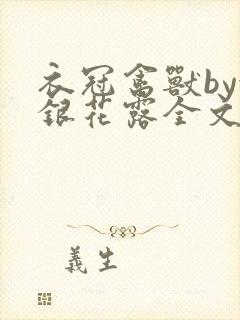 衣冠禽獸by
銀花露全文
義生